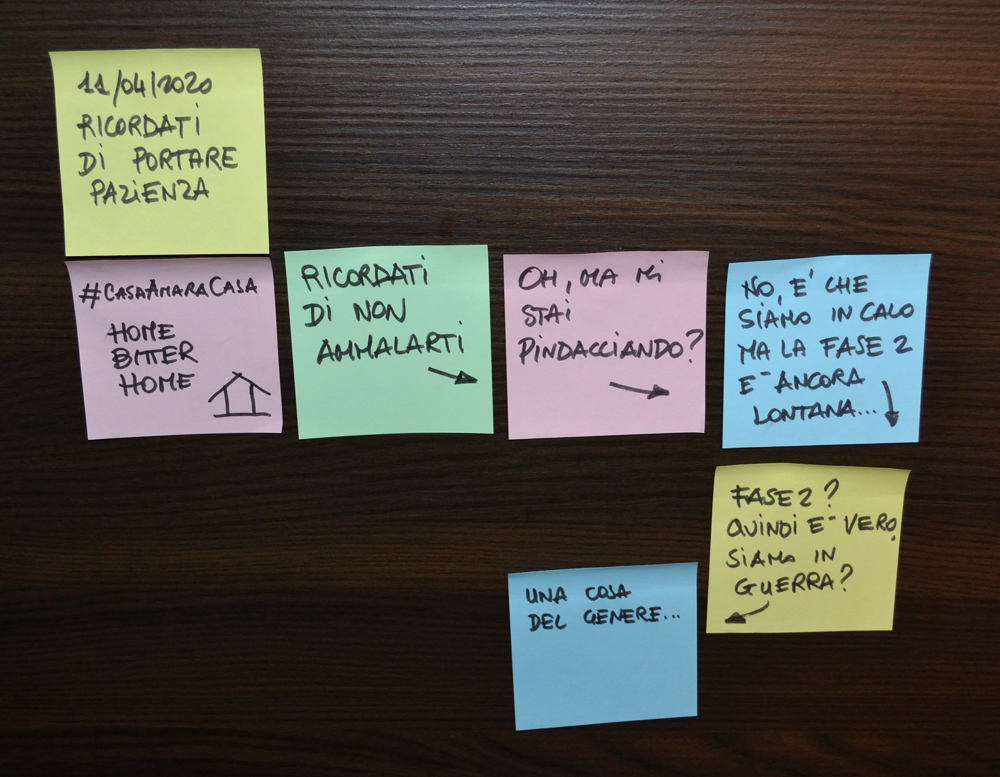 11/04/2020
RICORDATI
DI PORTARE
PAZIENZA
#CASAAMARACASA
HOME
BITTER
HOME
RICORDATI
DI NON
AMMALARTI
OH, MA MI
STAI
PINDACCIANDO?
NO, E' CHE
SIAMO IN CALO
MA LA FASE 2
E' ANCORA
LONTANA...
FASE 2?
QUINDI E' VERO,
SIAMO IN
GUERRA?
UNA COSA
DEL GENERE...